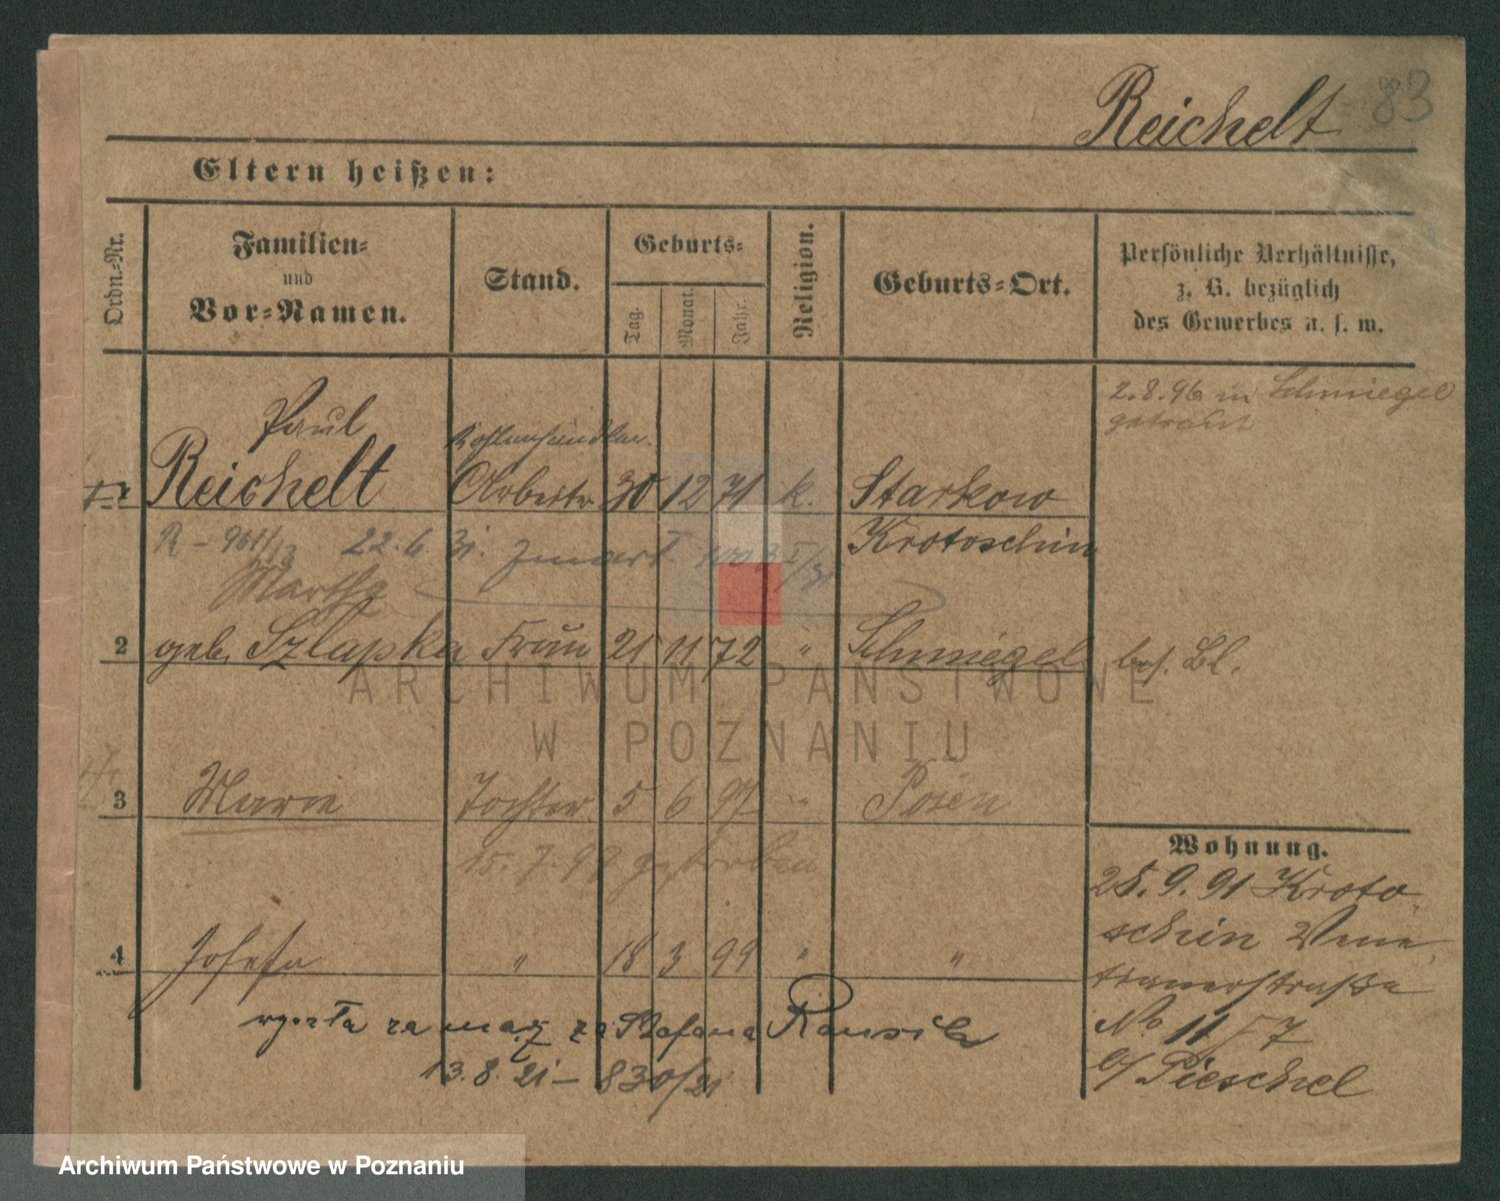 Reichelt 83
Eltern heißen:
Ordn.-Nr.
Familien-
und
Vor-Namen.
Stand.
Geburts-
Tag.
Monat.
Jahr.
Religion.
Geburts-Ort.
Persönliche Verhältnisse,
z. B. bezüglich
des Gewerbes u. s. w.
2.8.96 in Schmiegel
getraut
Paul
Kohlenhändler.
1 Reichelt Arbeiter 30 12 71 k. Starkow
Krotoschin
R - 961/13 22.6 31. zmarł
Martha
2 geb. Szlapka Frau 21 11 72 " Schmiegel bes. Bl.
3 Marie Tochter 5 6 97 " Posen
15.7.97 gestorben
4 Josefa " 18 3 99 " "
wyszła za mąż za Stefana
13.8.21 – 830/21
Wohnung.
25.9.91 Kroto
schin Vene
tianerstraße
No 11/7
b/ Pieschel
ARCHIWUM PAŃSTWOWE
W POZNANIU
Archiwum Państwowe w Poznaniu